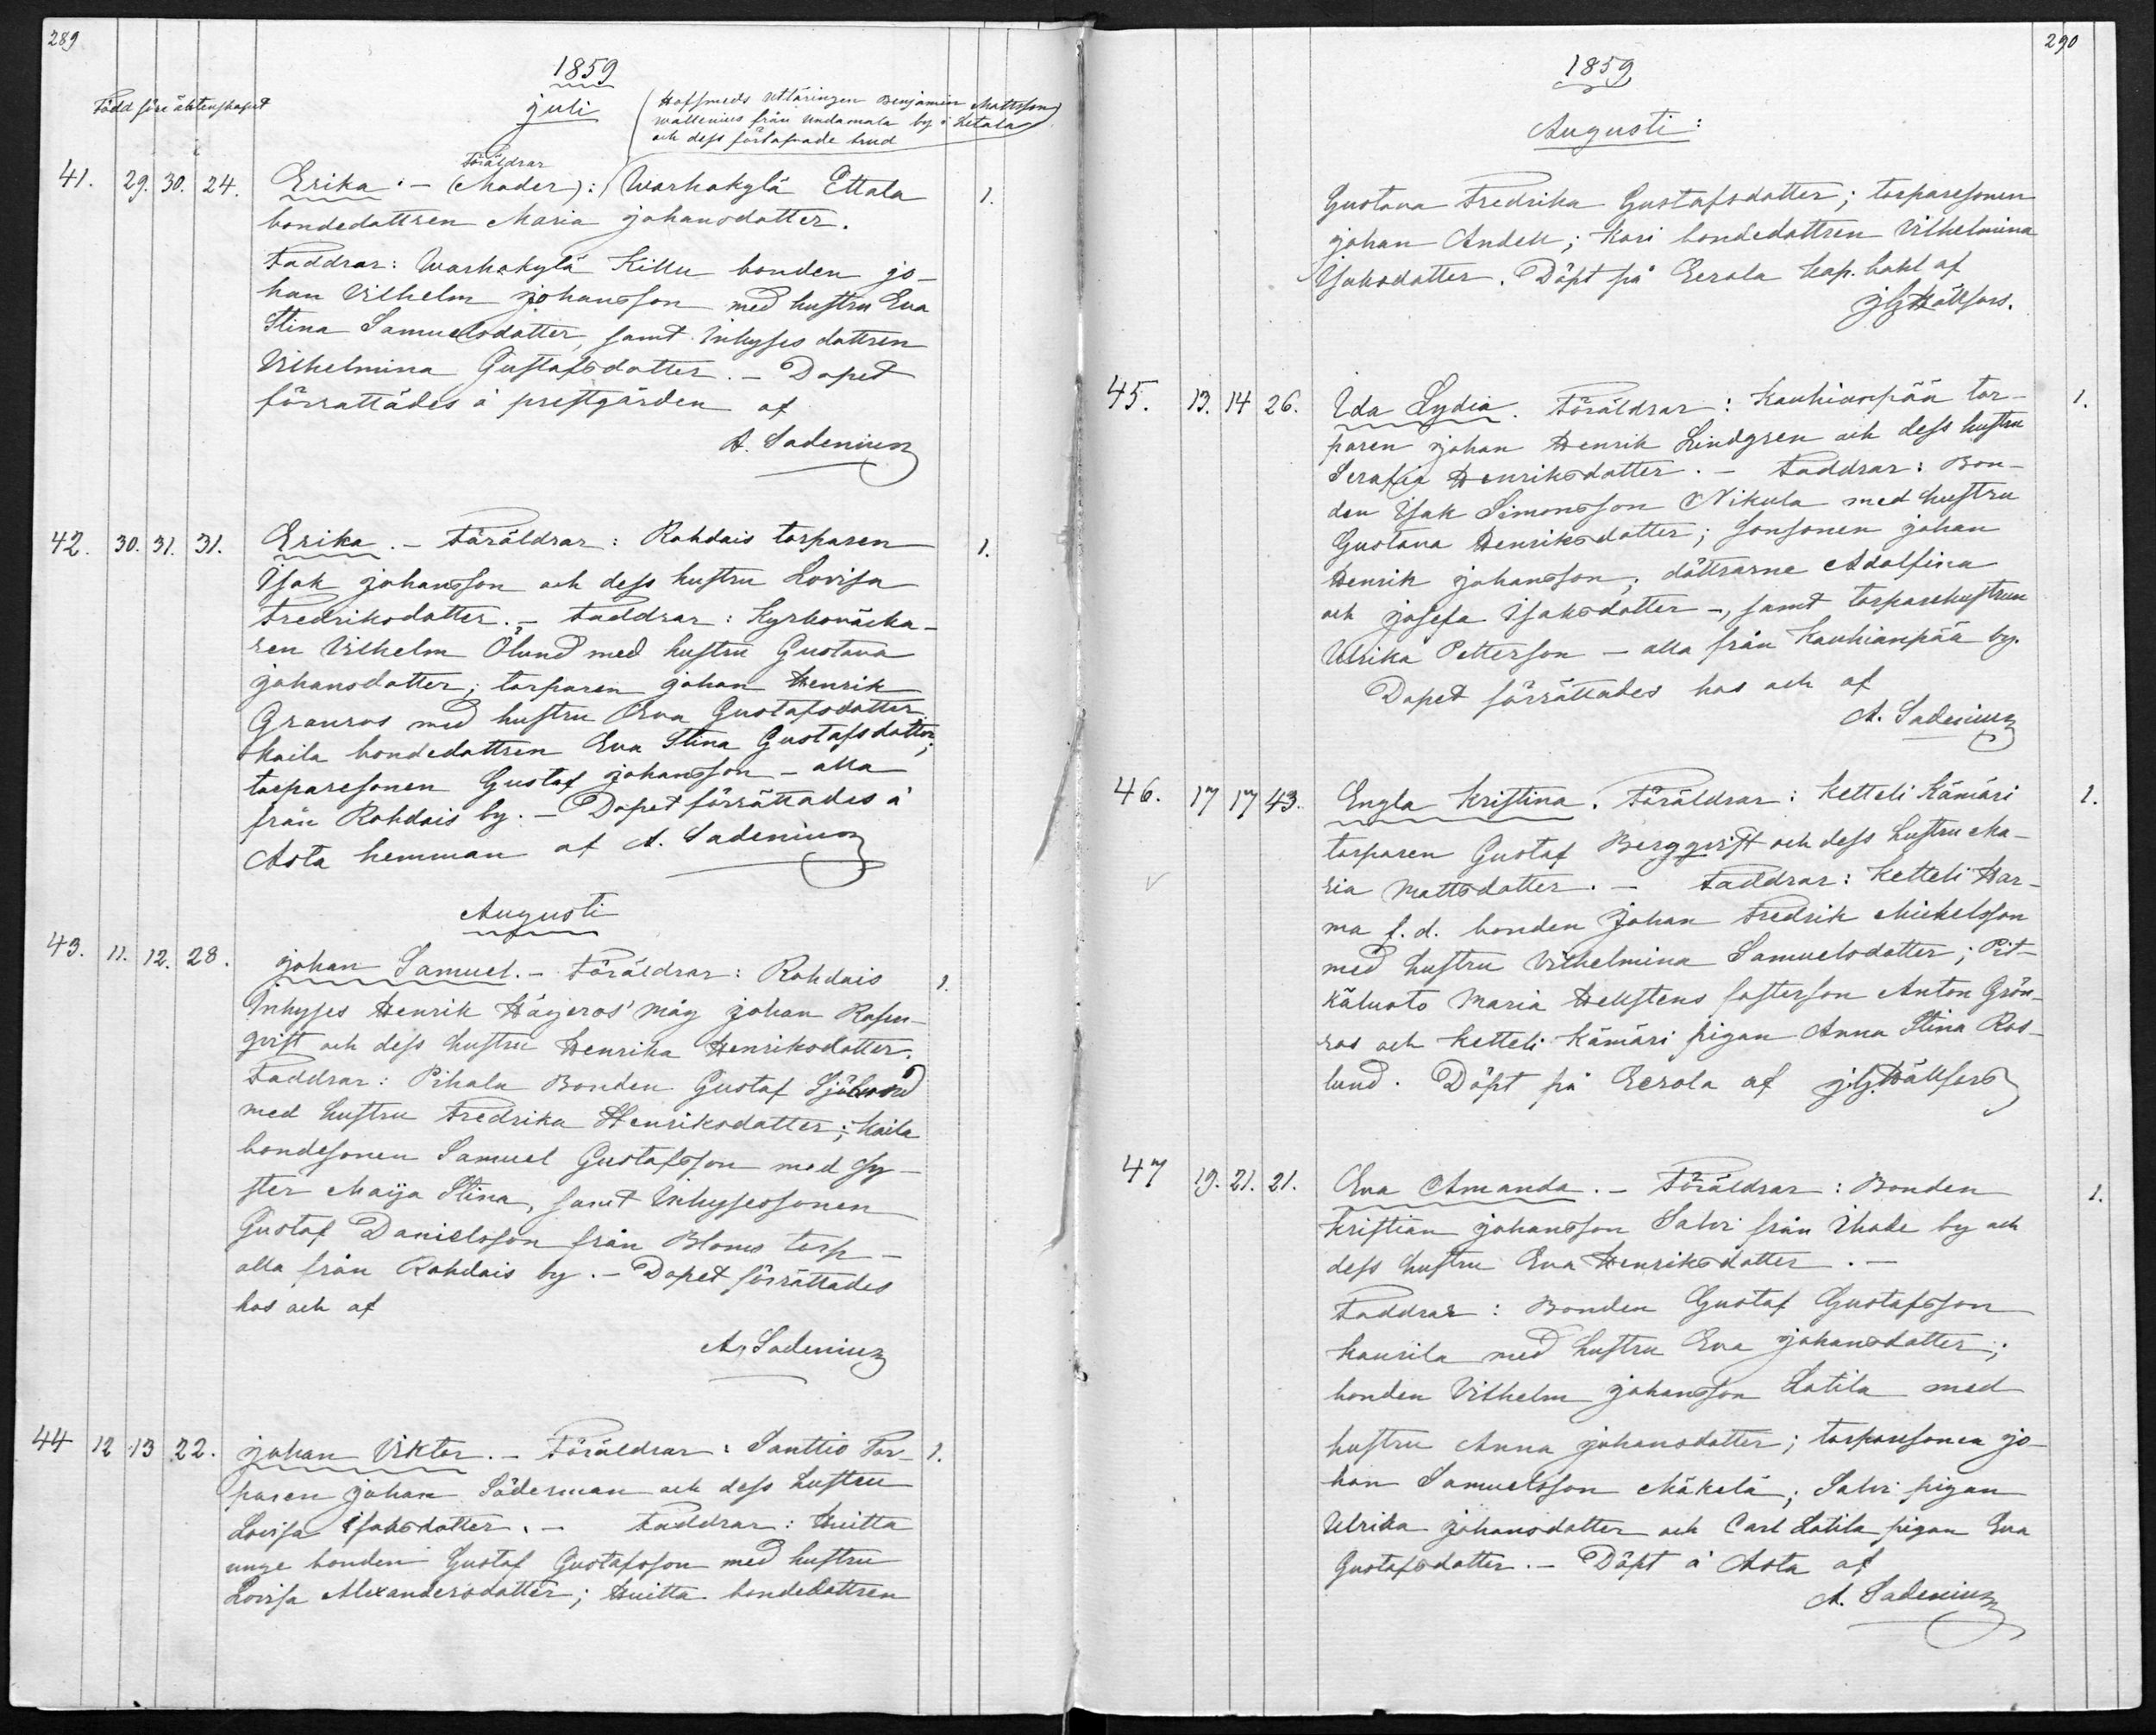 289
1859
Född före äktenskapet
juli
Hofsmeds utläringen Benjamin Mattsson
Wallenius från Undamala by i Letala
och dess förlofvade brud
Föräldrar
41. 29. 30. 24. Erika. — (Moder): Warhokylä Ettala 1.
bondedottren Maria Johansdotter.
Faddrar: Warhokylä Killu bonden Jo-
han Vilhelm Johansson med hustru Eva
Stina Samuelsdotter, samt Inhyses dottren
Vilhelmina Gustafsdotter. — Dopet
förrättades å prestgården af
A. Sadenius
42. 30. 31. 31. Erika. — Föräldrar: Rohdais torparen 1.
Isak Johansson och dess hustru Lovisa
Fredriksdotter. — Faddrar: Kyrkoväcka-
ren Vilhelm Ölund med hustru Gustava
Johansdotter; torparen Johan Henrik
Granros med hustru Eva Gustafsdotter
Kaila bondedottren Eva Stina Gustafsdotter;
torparesonen Gustaf Johansson — alla
från Rohdais by. — Dopet förrättades å
Asta hemman af A. Sadenius
Augusti
43. 11. 12. 28. Johan Samuel. — Föräldrar: Rohdais 1.
Inhyses Henrik Hägeros' måg Johan Rosen-
qvist och dess hustru Henrika Henriksdotter.
Faddrar: Pihala Bonden Gustaf
med hustru Fredrika Henriksdotter; Kaila
bondesonen Samuel Gustafsson med sy-
ster Maija Stina, samt Inhysessonen
Gustaf Danielsson från Bloms torp —
alla från Rohdais by. — Dopet förrättades
hos och af
A. Sadenius
44 12 13 22. Johan Viktor. — Föräldrar: Santtio Tor- 1.
paren Johan Söderman och dess hustru
Lovisa Isaksdotter. — Faddrar: Huitta
unge bonden Gustaf Gustafsson med hustru
Lovisa Alexandersdotter; Huitta bondedottren
290
1859
Augusti:
Gustava Fredrika Gustafsdotter; torparesonen
Johan Andell; Kari bondedottren Vilhelmina
Isaksdotter. Döpt på Eerola kap. bohl af
Hällfors.
45. 13. 14 26. Ida Lydia. Föräldrar: Kauhianpää tor- 1.
paren Johan Henrik Lindgren och dess hustru
Serafia Henriksdotter. — Faddrar: Bon-
den Isak Simonsson Nikula med hustru
Gustava Henriksdotter; sonsonen Johan
Henrik Johansson; döttrarne Adolfina
och Josefa Isaksdotter —, samt torparehustrun
Ulrika Petterson — alla från Kauhianpää by.
Dopet förrättades hos och af
A. Sadenius
46. 17 17 43. Engla Kristina. Föräldrar: Ketteli Kämäri 1.
torparen Gustaf Bergqvist och dess hustru Ma-
ria Mattsdotter. — Faddrar: Ketteli Har-
ma f.d. bonden Johan Fredrik Mickelsson
med hustru Vilhelmina Samuelsdotter; Pit-
käluoto Maria Hellstens fosterson Anton Grön-
ros och Ketteli Kämäri pigan Anna Stina Ros-
lund. Döpt på Eerola af Hällfors
47 19. 21. 21. Eva Amanda. — Föräldrar: Bonden 1.
Kristian Johansson Salvi från Ihode by och
dess hustru Eva Henriksdotter. —
Faddrar: Bonden Gustaf Gustafsson
Kaurila med hustru Eva Johansdotter;
bonden Vilhelm Johansson Latila med
hustru Anna Johansdotter; torparesonen Jo-
han Samuelsson Mäkelä; Salvi pigan
Ulrika Johansdotter och Carl Latila pigan Eva
Gustafsdotter. — Döpt å Asta af
A. Sadenius